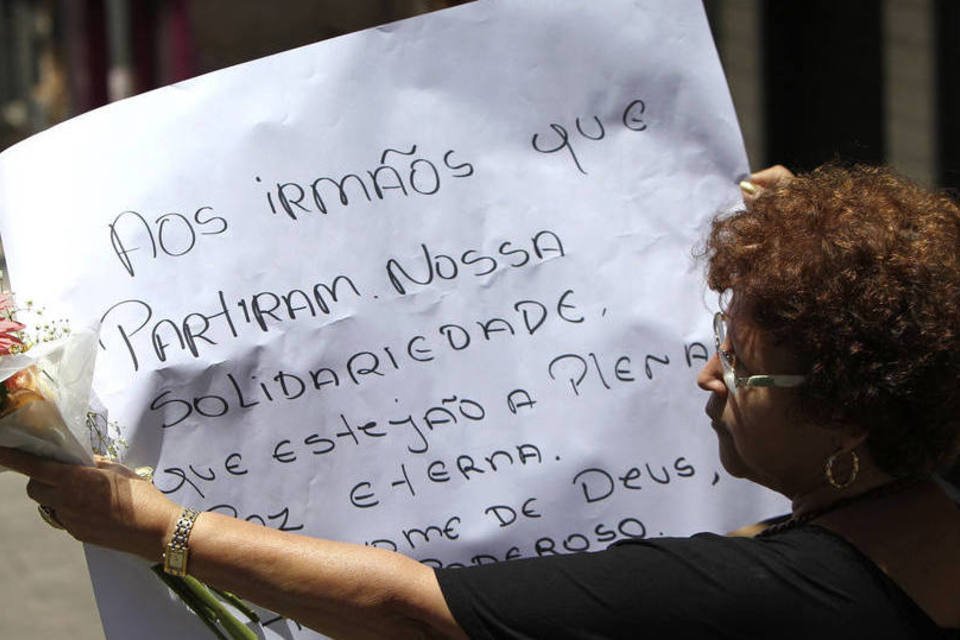 AOS IRMÃOS QUE
PARTIRAM. NOSSA
SOLIDARIEDADE,
QUE ESTEJÃO A PLENA
PAZ ETERNA.
DE DEUS,
PODEROSO.